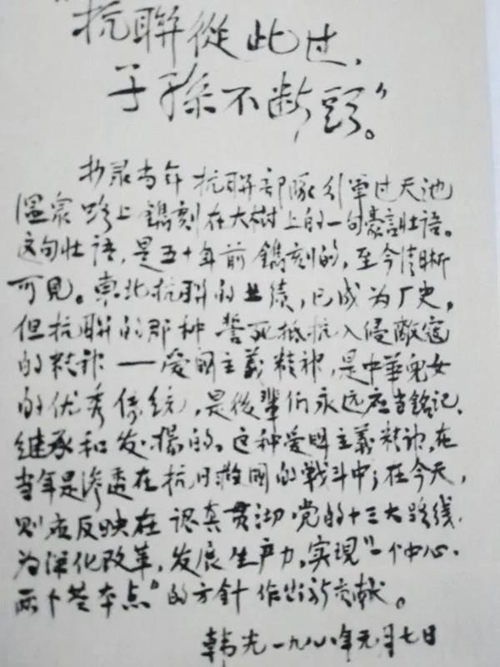 "抗聯從此过,
子孫不断頭"。
抄录当年抗聯部隊引軍过天池
温泉路上鐫刻在大樹上的一句豪言壮语。
这句壮语,是五十年前鐫刻的,至今清晰
可见。東北抗联的业绩,已成为厂史,
但抗联的那种誓死抵抗入侵敵寇
的精神——爱国主義精神,是中華兒女
的优秀传统,是後輩们永远应当銘记、
继承和发揚的。这种爱国主義精神,在
当年是渗透在抗日救国的战斗中;在今天,
则应反映在认真贯彻党的十三大路线,
为深化改革,发展生产力,实现"一个中心、
两个基本点"的方針作出新贡献。
韩光一九八八年元月七日